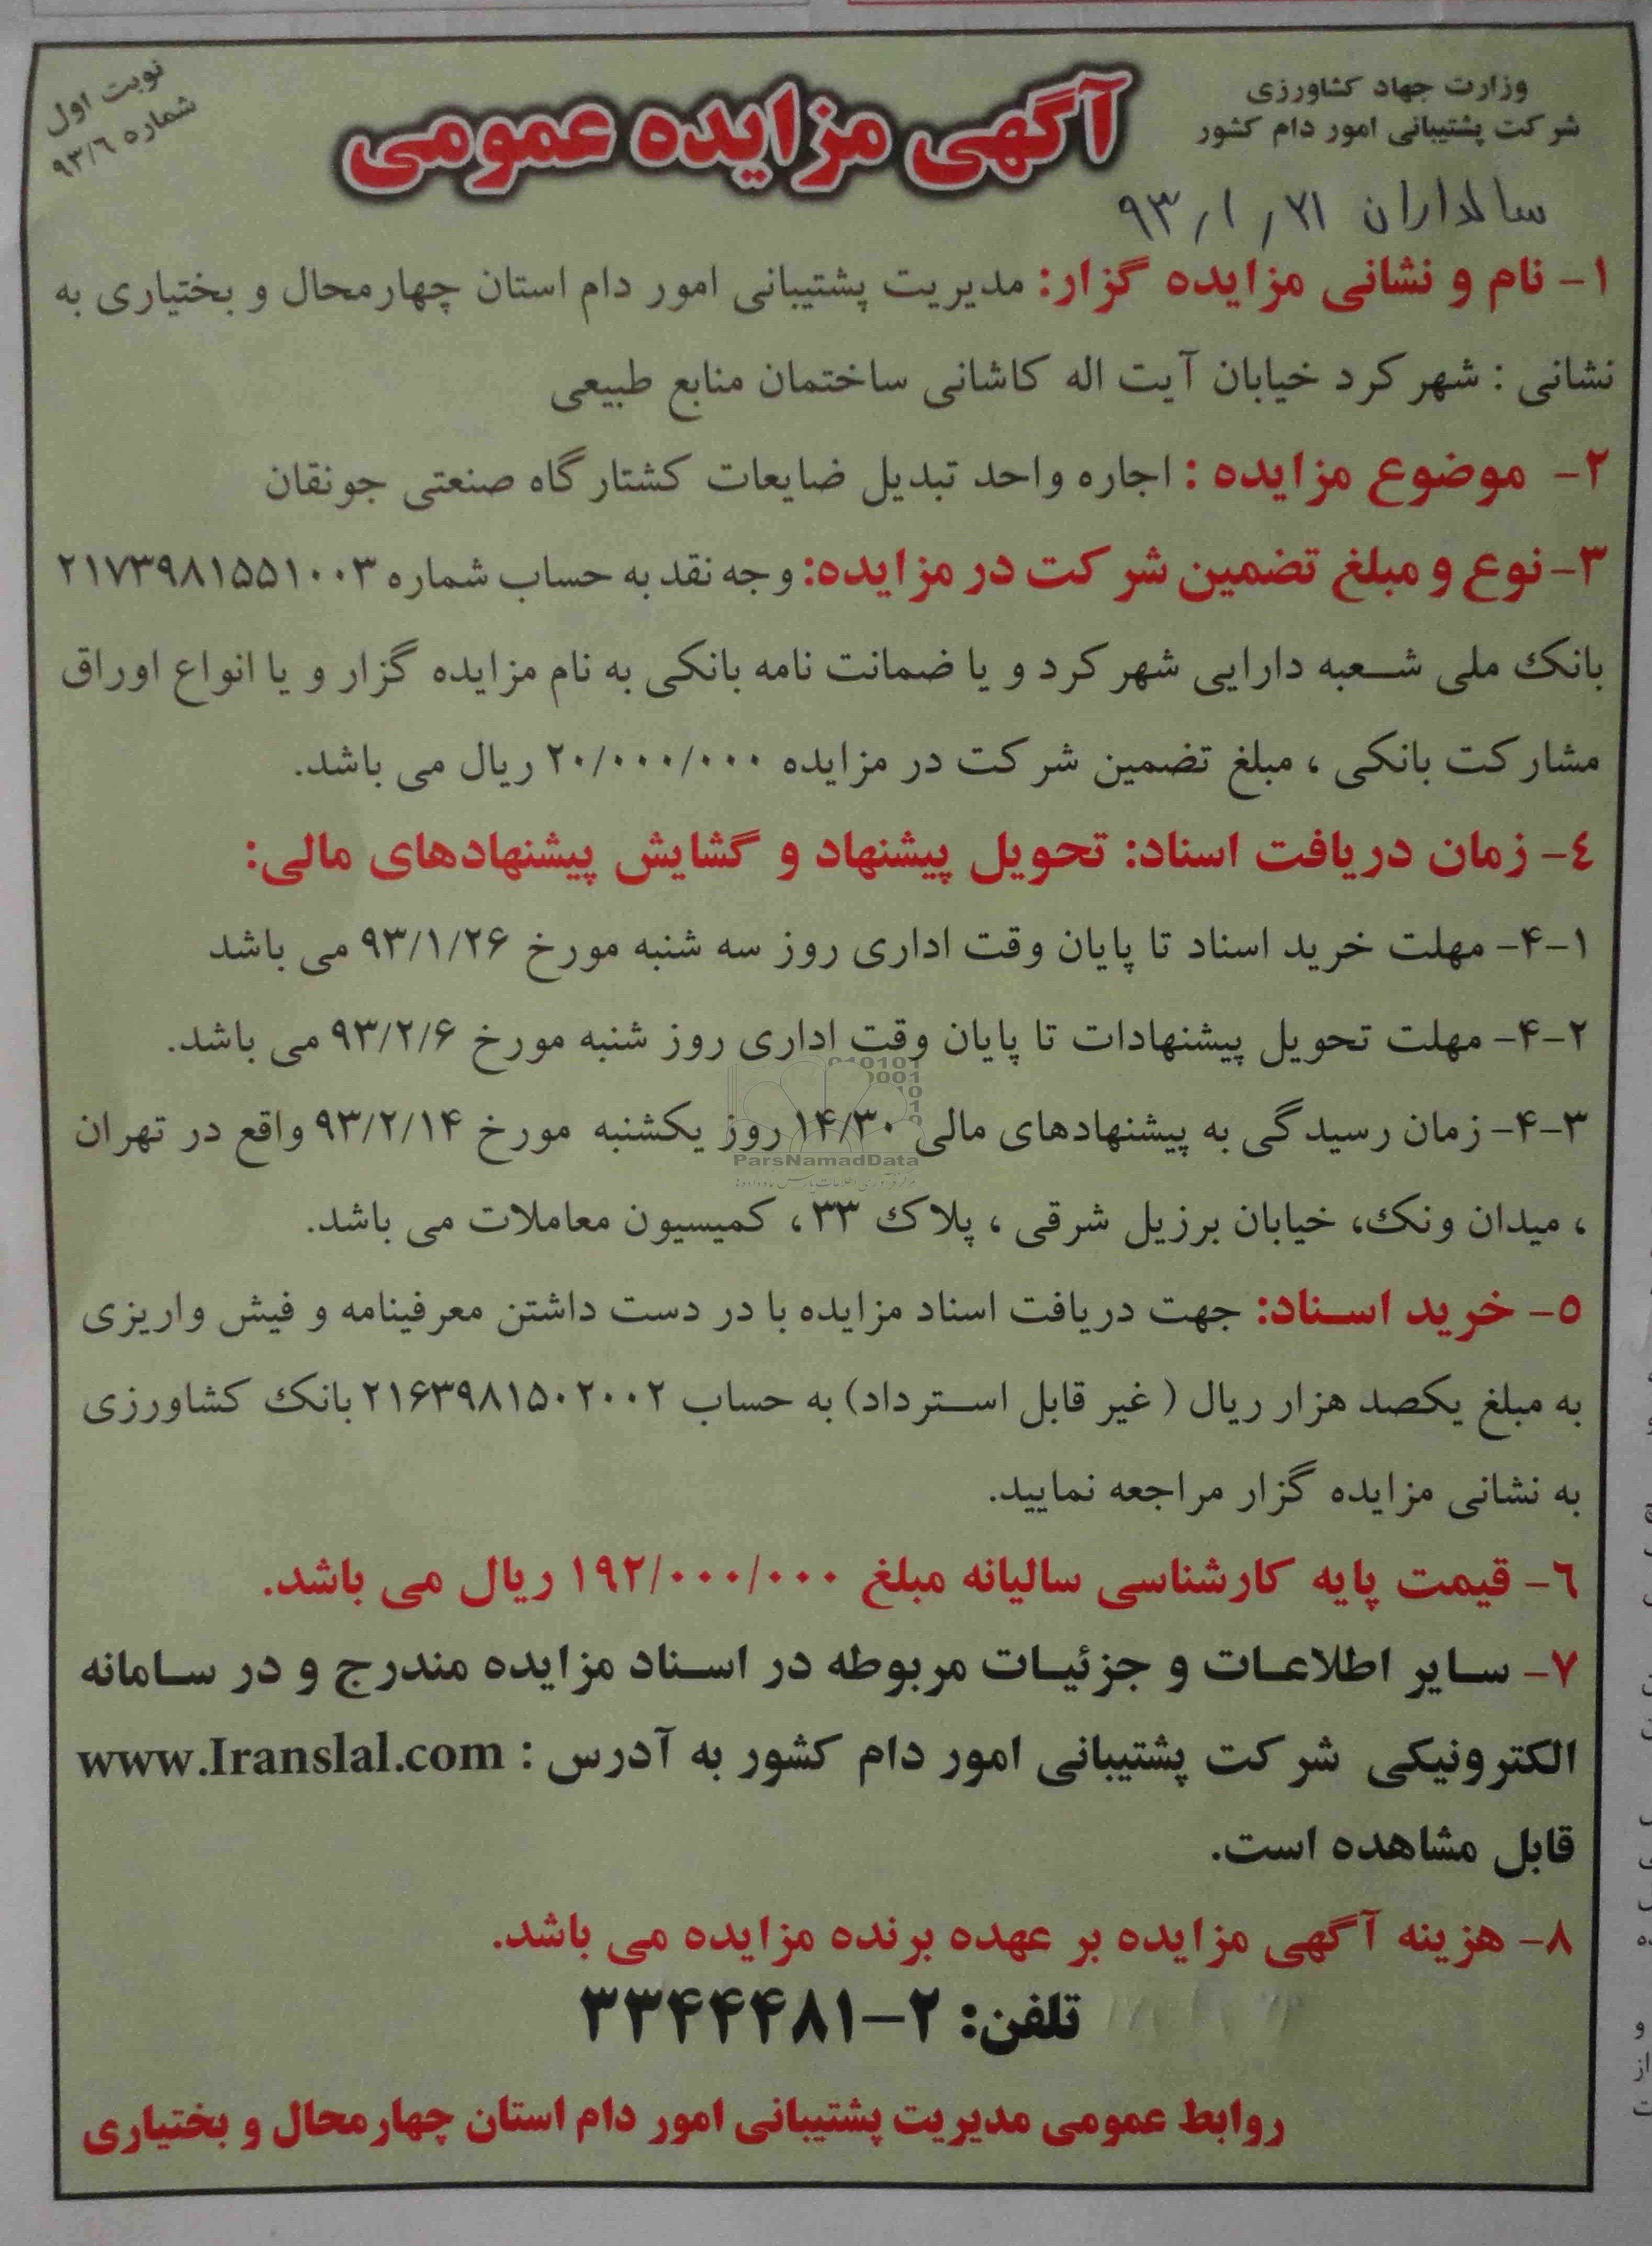 وزارت جهاد کشاورزی
شرکت پشتیبانی امور دام کشور
آگهی مزایده عمومی
نوبت اول
شماره ۹۳/۶
۹۳/۱/
۱- نام و نشانی مزایده گزار: مدیریت پشتیبانی امور دام استان چهارمحال و بختیاری به
نشانی : شهر کرد خیابان آیت اله کاشانی ساختمان منابع طبیعی
۲- موضوع مزایده : اجاره واحد تبدیل ضایعات کشتارگاه صنعتی جونقان
۳- نوع و مبلغ تضمین شرکت در مزایده: وجه نقد به حساب شماره ۲۱۷۳۹۸۱۵۵۱۰۰۳
بانک ملی شعبه دارایی شهر کرد و یا ضمانت نامه بانکی به نام مزایده گزار و یا انواع اوراق
مشارکت بانکی ، مبلغ تضمین شرکت در مزایده ۲۰/۰۰۰/۰۰۰ ریال می باشد.
٤- زمان دریافت اسناد: تحویل پیشنهاد و گشایش پیشنهادهای مالی:
۴-۱- مهلت خرید اسناد تا پایان وقت اداری روز سه شنبه مورخ ۹۳/۱/۲۶ می باشد
۴-۲- مهلت تحویل پیشنهادات تا پایان وقت اداری روز شنبه مورخ ۹۳/۲/۶ می باشد.
۴-۳- زمان رسیدگی به پیشنهادهای مالی ۱۴/۳۰ روز یکشنبه مورخ ۹۳/۲/۱۴ واقع در تهران
ParsNamadData
، میدان ونک، خیابان برزیل شرقی ، پلاک ۳۳ ، کمیسیون معاملات می باشد.
٥- خرید اسناد: جهت دریافت اسناد مزایده با در دست داشتن معرفینامه و فیش واریزی
به مبلغ یکصد هزار ریال ( غیر قابل استرداد) به حساب ۲۱۶۳۹۸۱۵۰۲۰۰۲ بانک کشاورزی
به نشانی مزایده گزار مراجعه نمایید.
٦- قیمت پایه کارشناسی سالیانه مبلغ ۱۹۲/۰۰۰/۰۰۰ ریال می باشد.
۷- سایر اطلاعات و جزئیات مربوطه در اسناد مزایده مندرج و در سامانه
الکترونیکی شرکت پشتیبانی امور دام کشور به آدرس : www.Iranslal.com
قابل مشاهده است.
۸- هزینه آگهی مزایده بر عهده برنده مزایده می باشد.
تلفن: ۲-۳۳۴۴۴۸۱
روابط عمومی مدیریت پشتیبانی امور دام استان چهارمحال و بختیاری